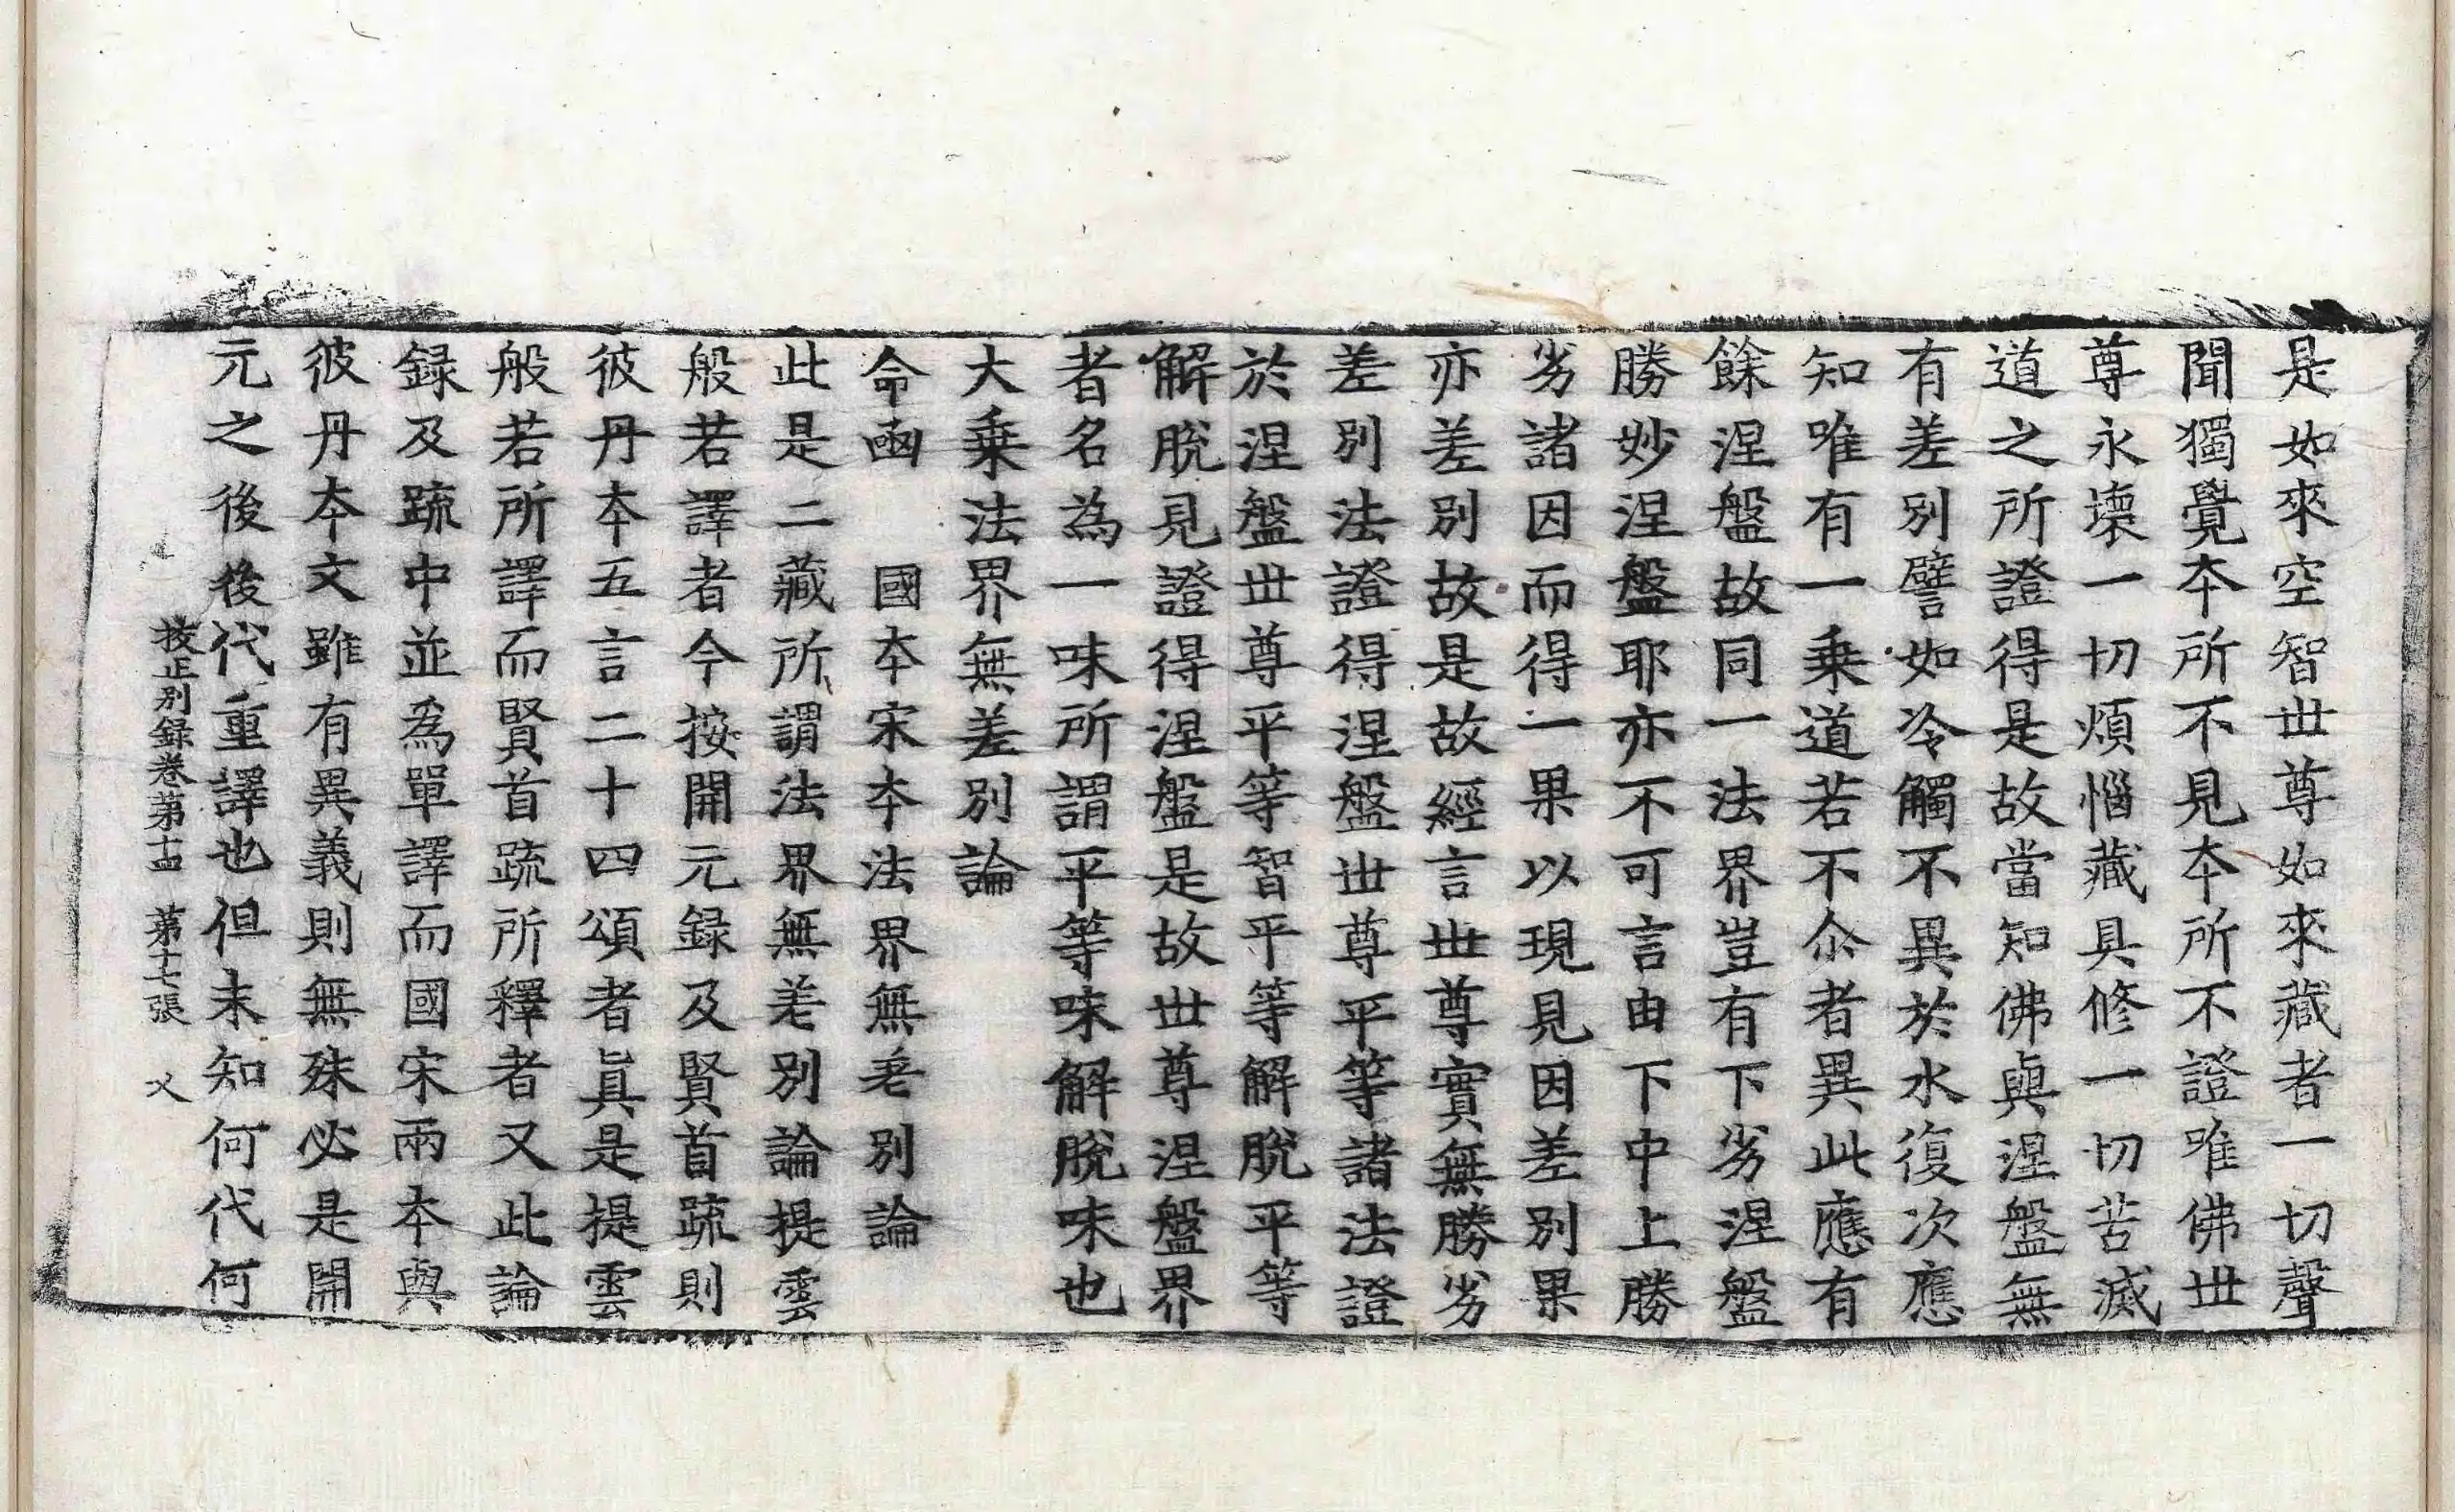 是如來空智世尊如來藏者一切聲
聞獨覺本所不見本所不證唯佛世
尊永壞一切煩惱藏具修一切苦滅
道之所證得是故當知佛與涅盤無
有差別譬如冷觸不異於水復次應
知唯有一乗道若不尒者異此應有
餘涅盤故同一法界豈有下劣涅盤
勝妙涅盤耶亦不可言由下中上勝
劣諸因而得一果以現見因差別果
亦差別故是故經言世尊實無勝劣
差別法證得涅盤世尊平等諸法證
於涅盤世尊平等智平等解脫平等
解脫見證得涅盤是故世尊涅盤界
者名為一味所謂平等味解脫味也
大乗法界無差別論
命凾　國本宋本法界無差別論
此是二藏所謂法界無差別論提雲
般若譯者今按開元録及賢首疏則
彼丹本五言二十四頌者真是提雲
般若所譯而賢首疏所釋者又此論
録及疏中並為單譯而國宋兩本與
彼丹本文雖有異義則無殊必是開
元之後後代重譯也但未知何代何
挍正別録卷第十四　第十七張　乂